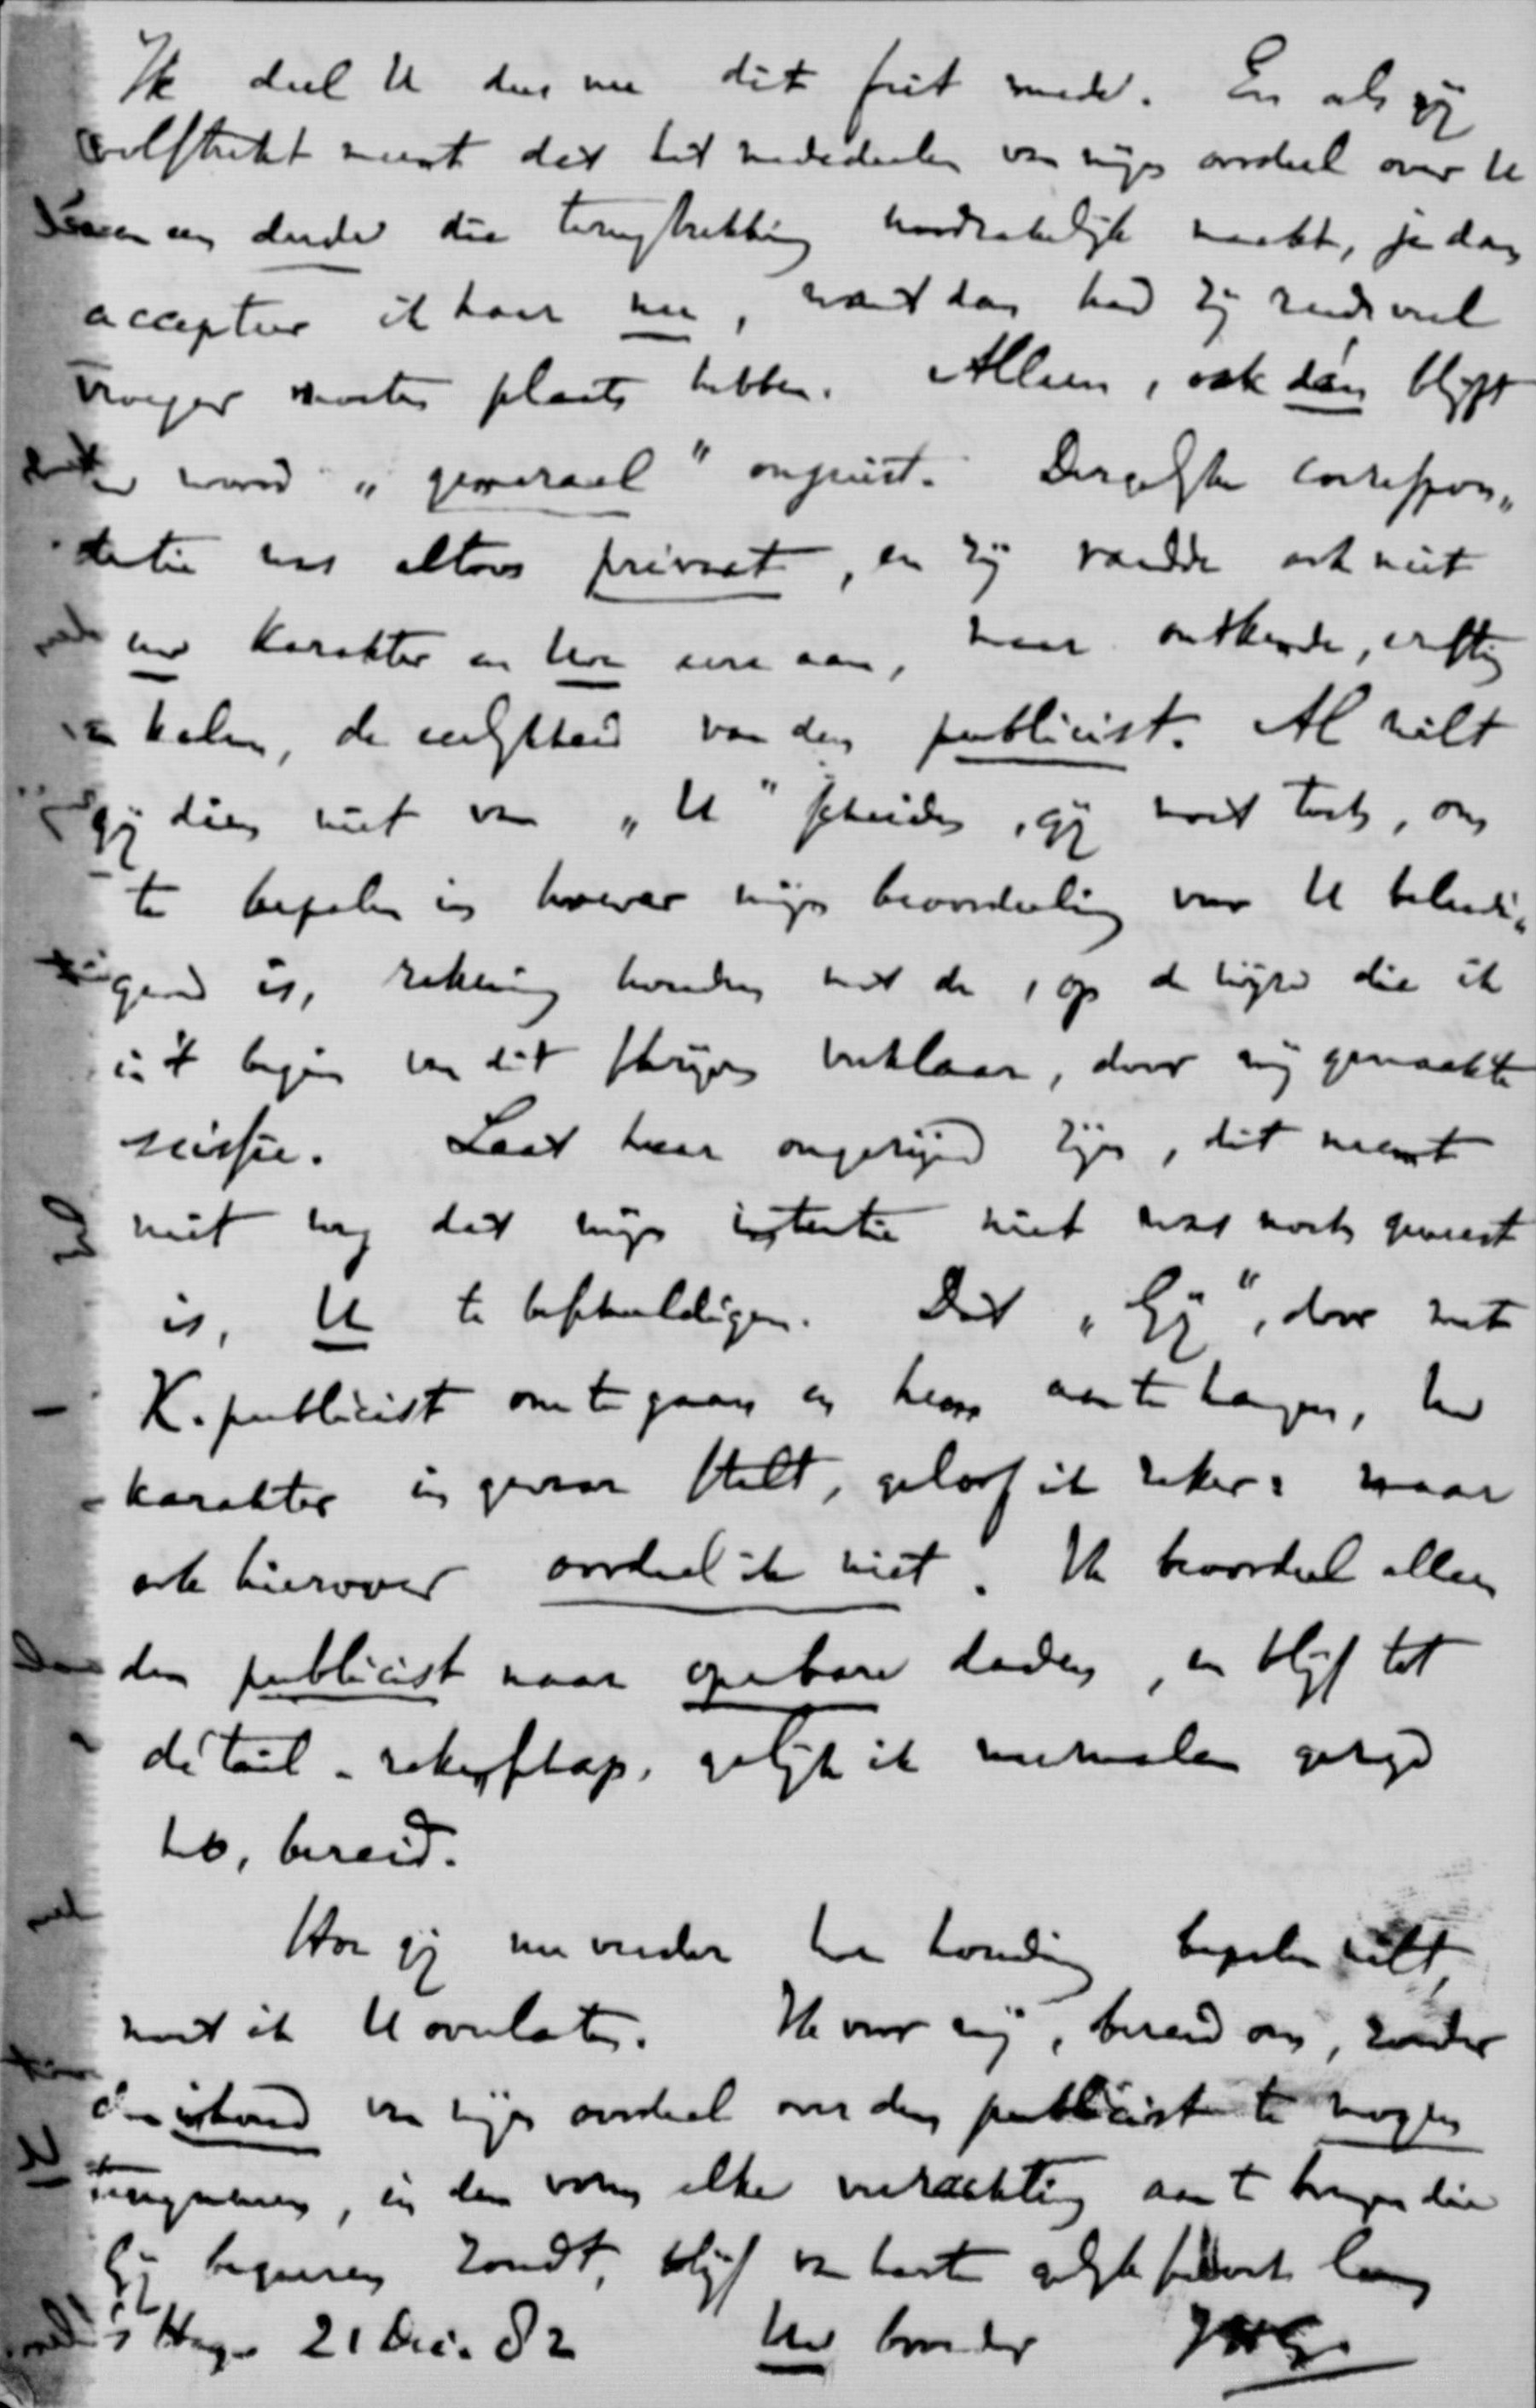 Ik deel U dus nu dit feit mede. En als gij
volstrekt meent dat het mededeelen van mijn oordeel over U
aan een derde die terugtrekking noodzakelijk maakt, ja dan
accepteer ik haar nu, want dan had zij reeds veel
vroeger moeten plaats hebben. Alleen, ook dán blijft
het woord „generaal" onjuist. Dergelijke correspon„
dentie was altoos privaat, en zij randde ook niet
uw karakter en Uw eere aan, maar ontkende, ernstig
en kalm, de eerlijkheid van den publicist. Al wilt
gij dien niet van „U" scheiden, gij moet toch, om
te bepalen in hoever mijn beoordeeling voor U beleedi„
gend is, rekening houden met de, op de wijze die ik
in 't begin van dit schrijven verklaar, door mij gemaakte
scissie. Laat haar ongerijmd zijn, dit neemt
niet weg dat mijn intentie niet was noch geweest
is, U te beschuldigen. Dat „Gij", door met
K. publicist om te gaan en hem aan te hangen, Uw
karakter in gevaar stelt, geloof ik zeker: maar
ook hierover oordeel ik niet. Ik beoordeel alleen
den publicist naar openbare daden, en blijf tot
détail-rekenschap, gelijk ik meermalen gezegd
heb, bereid.
Hoe gij nu verder Uw houding bepalen wilt,
moet ik U overlaten. Ik voor mij, bereid om, zonder
den inhoud van mijn oordeel over den publicist te mogen
, in den vorm elke verzachting aan te brengen die
Gij begeeren zoudt, blijf van harte gelijk steeds lang
's Hage 21 Dec. 82 Uw broeder